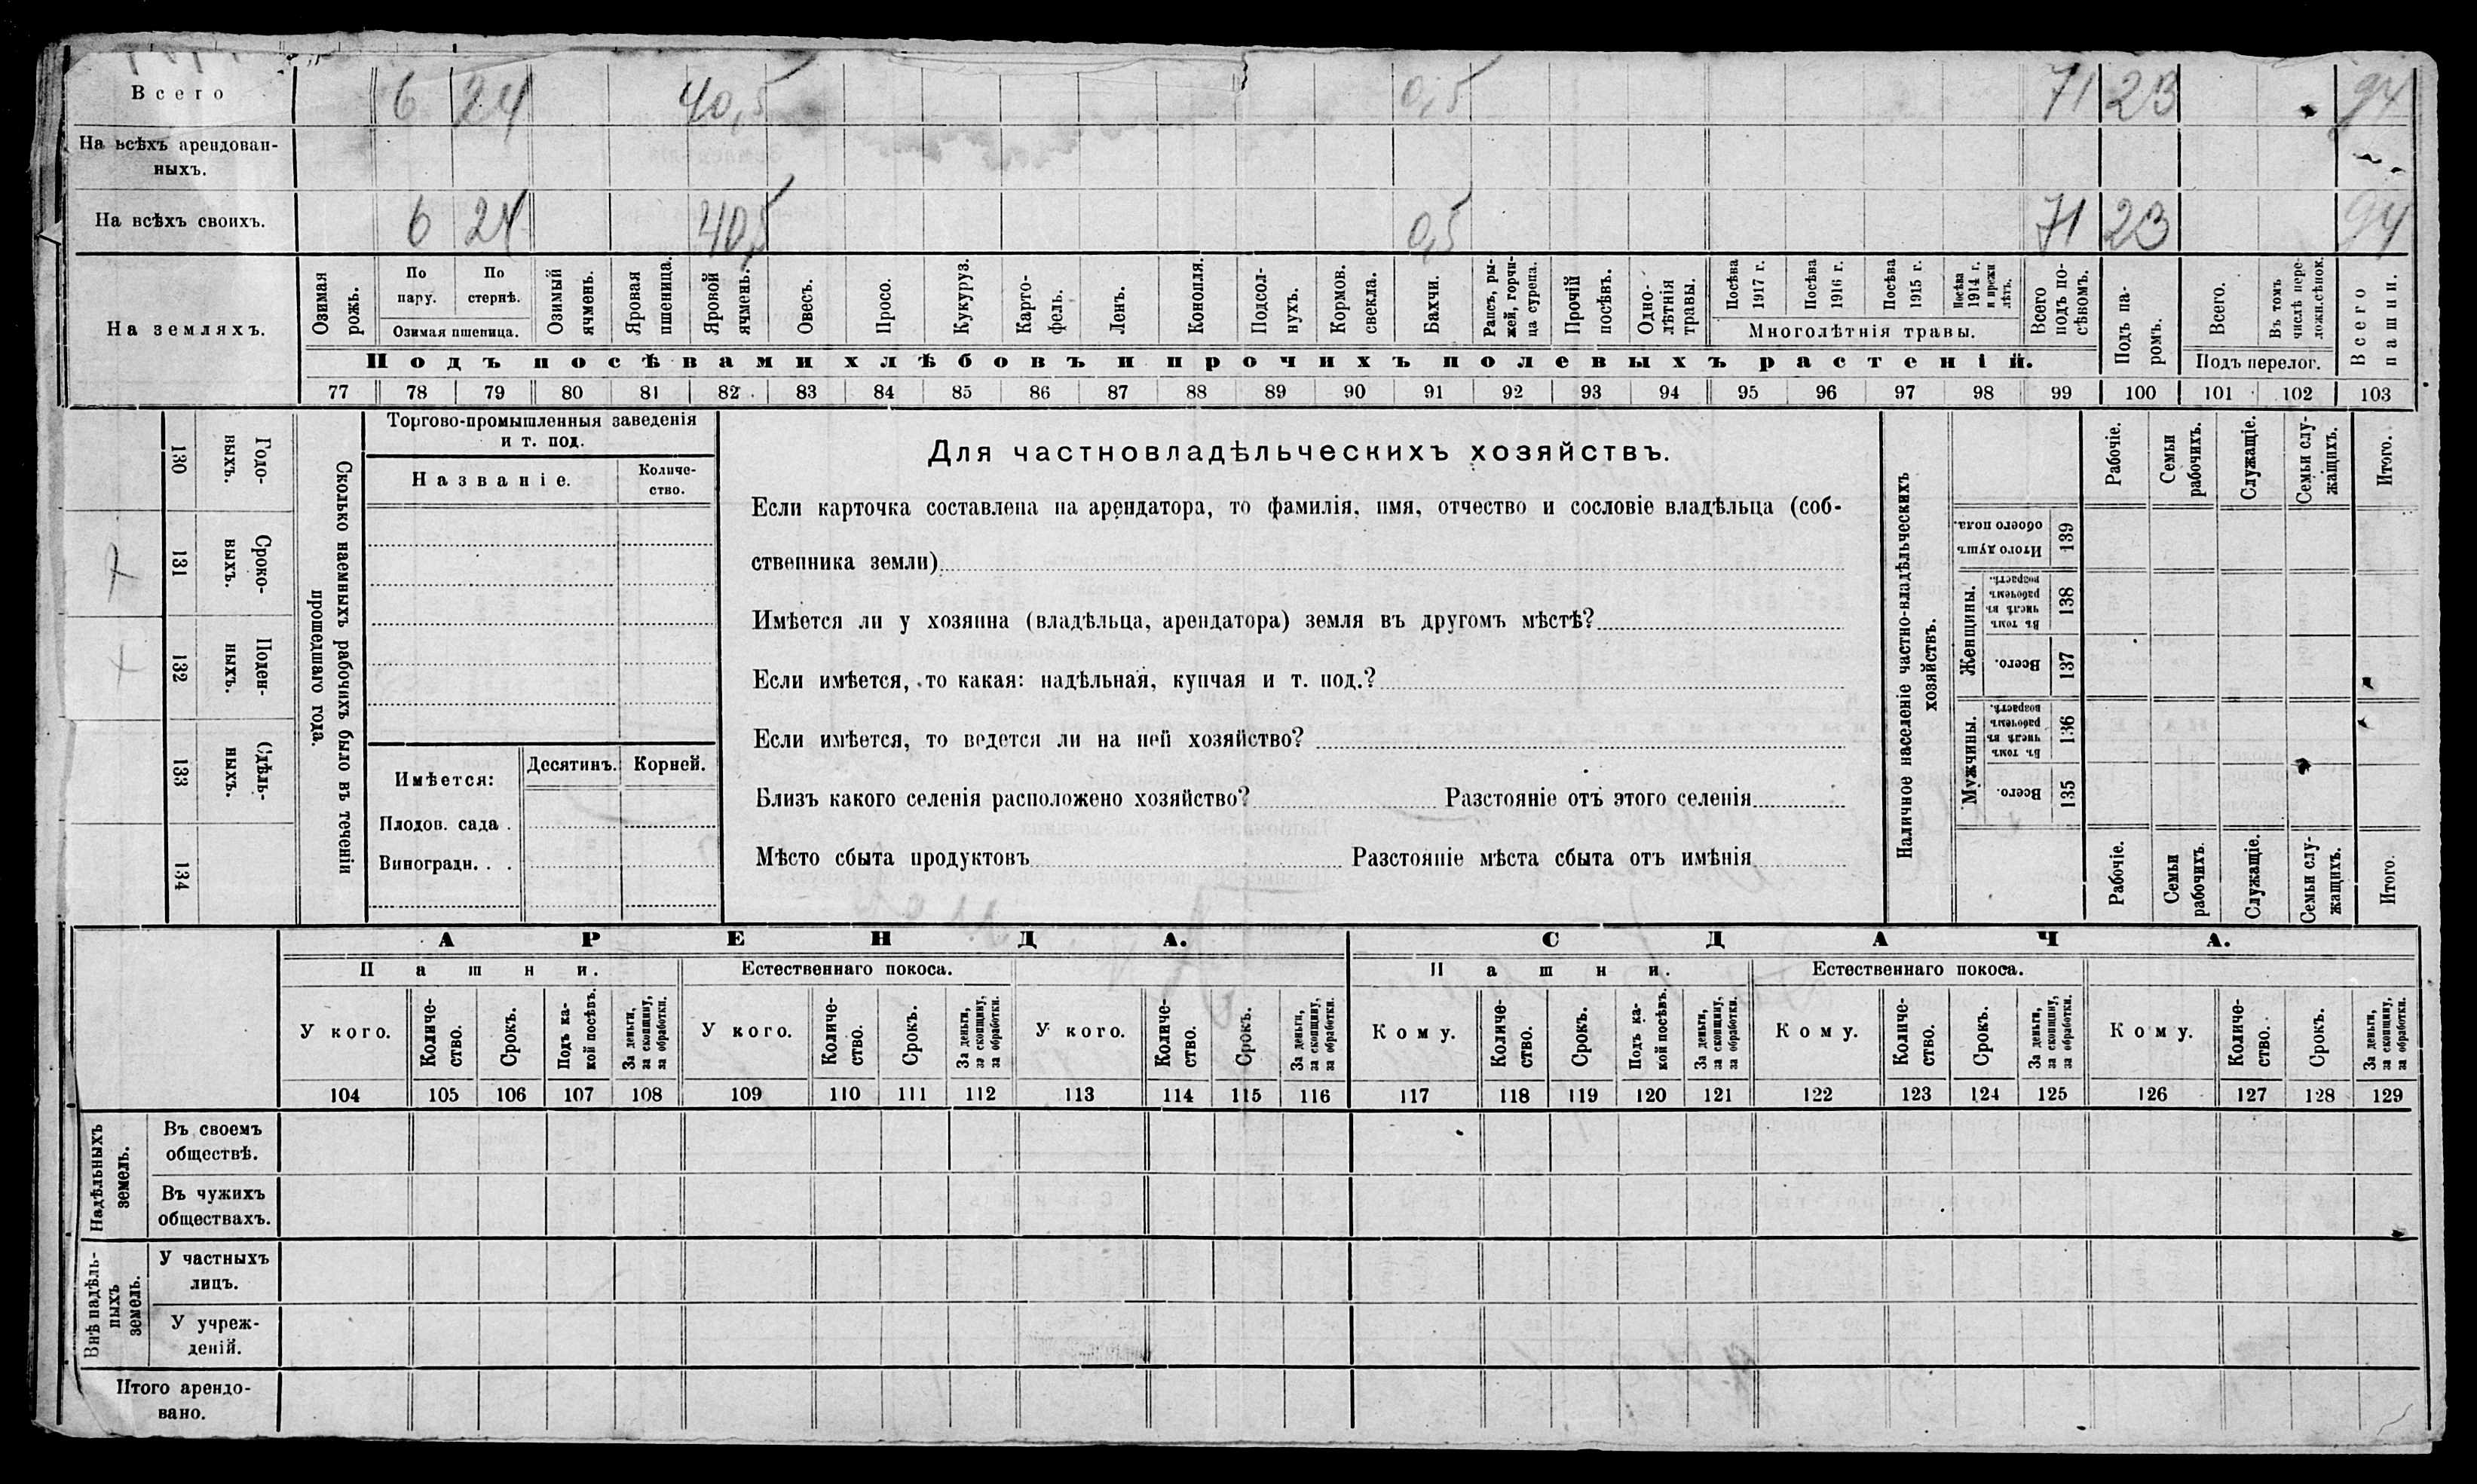 Всего 6 24 40,5 0,5 71 23 94
На всѣхъ арендован-
ныхъ.
На всѣхъ своихъ. 6 24 40,5 0,5 71 23 94
На земляхъ.
Озимая рожь.
По пару.
По стернѣ.
Озимая пшеница.
Озимый ячмень.
Яровая пшеница.
Яровой ячмень.
Овесъ.
Просо.
Кукуруз.
Карто-
фель.
Ленъ.
Конопля.
Подсол-
нухъ.
Кормов. свекла.
Бахчи.
Рапсъ, ры-
жей, горчи-
ца сурепа.
Прочій посѣвъ.
Одно-
лѣтнія травы.
Посѣва 1917 г.
Посѣва 1916 г.
Посѣва 1915 г.
Посѣва 1914 г. и прежн лѣтъ.
Многолѣтнія травы.
Всего подъ по-
сѣвомъ.
Подъ па-
ромъ.
Всего.
Въ томъ числѣ пере-
ложн.сѣнок.
Подъ перелог.
Всего пашни.
Подъ посѣвами хлѣбовъ и прочихъ полевыхъ растеній.
77 78 79 80 81 82 83 84 85 86 87 88 89 90 91 92 93 94 95 96 97 98 99 100 101 102 103
130 Годо-
выхъ.
131 Сроко-
выхъ.
132 Поден-
ныхъ.
133 Сдѣль-
ныхъ.
134
Сколько наемныхъ рабочихъ было въ теченіи
прошедшаго года.
Торгово-промышленныя заведенія
и т. под.
Названіе.
Количе-
ство.
Имѣется: Десятинъ. Корней.
Плодов. сада .
Виноградн. . .
Для частновладѣльческихъ хозяйствъ.
Если карточка составлена на арендатора, то фамилія, имя, отчество и сословіе владѣльца (соб-
ственника земли)
Имѣется ли у хозяина (владѣльца, арендатора) земля въ другомъ мѣстѣ?
Если имѣется, то какая: надѣльная, купчая и т. под.?
Если имѣется, то ведется ли на ней хозяйство?
Близъ какого селенія расположено хозяйство? Разстояніе отъ этого селенія
Мѣсто сбыта продуктовъ Разстояніе мѣста сбыта отъ имѣнія
Наличное населеніе частно-владѣльческихъ
хозяйствъ.
Рабочіе.
Семьи рабочихъ.
Служащіе.
Семьи слу-
жащихъ.
Итого.
Итого душъ обоего пола. 139
Женщины.
Въ томъ числѣ въ рабочемъ возрастѣ. 138
Всего. 137
Мужчины.
Въ томъ числѣ въ рабочемъ возрастѣ. 136
Всего. 135
Рабочіе.
Семьи рабочихъ.
Служащіе.
Семьи слу-
жащихъ.
Итого.
АРЕНДА. СДАЧА.
Пашни. Естественнаго покоса. Пашни. Естественнаго покоса.
У кого.
Количе-
ство.
Срокъ.
Подъ ка-
кой посѣвъ.
За деньги, за скопщину, за обработки.
У кого.
Количе-
ство.
Срокъ.
За деньги, за скопщину, за обработки.
У кого.
Количе-
ство.
Срокъ.
За деньги, за скопщину, за обработки.
Кому.
Количе-
ство.
Срокъ.
Подъ ка-
кой посѣвъ.
За деньги, за скопщину, за обработки.
Кому.
Количе-
ство.
Срокъ.
За деньги, за скопщину, за обработки.
Кому.
Количе-
ство.
Срокъ.
За деньги, за скопщину, за обработки.
104 105 106 107 108 109 110 111 112 113 114 115 116 117 118 119 120 121 122 123 124 125 126 127 128 129
Надѣльныхъ земель.
Въ своемъ
обществѣ.
Въ чужихъ
обществахъ.
Внѣ надѣль-
ныхъ земель.
У частныхъ
лицъ.
У учреж-
деній.
Итого арендо-
вано.